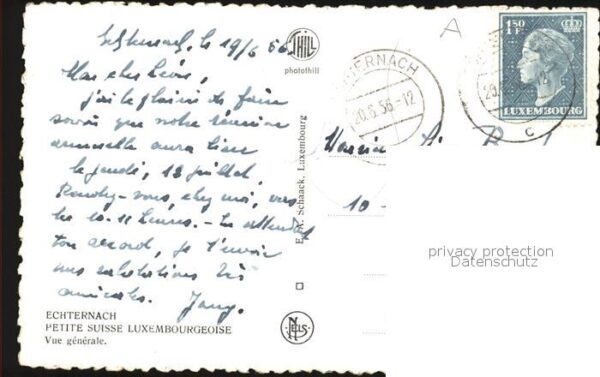 Echternach, le 19/6 56
Mon cher Léon,
j'ai le plaisir de faire
savoir que notre réunion
annuelle aura lieu
le jeudi, 12 juillet,
Rendez-vous, chez moi, vers
les 10-11 heures. - En attendant
ton accord, je t'envoie
mes salutations très
amicales. Jang.
ECHTERNACH
PETITE SUISSE LUXEMBOURGEOISE
Vue générale.
THILL
photothill
E. A. Schaack, Luxembourg
NELS
A
ECHTERNACH
20.6.56-12
1.50
1F
LUXEMBOURG
C
Monsieur
10 -
privacy protection
Datenschutz